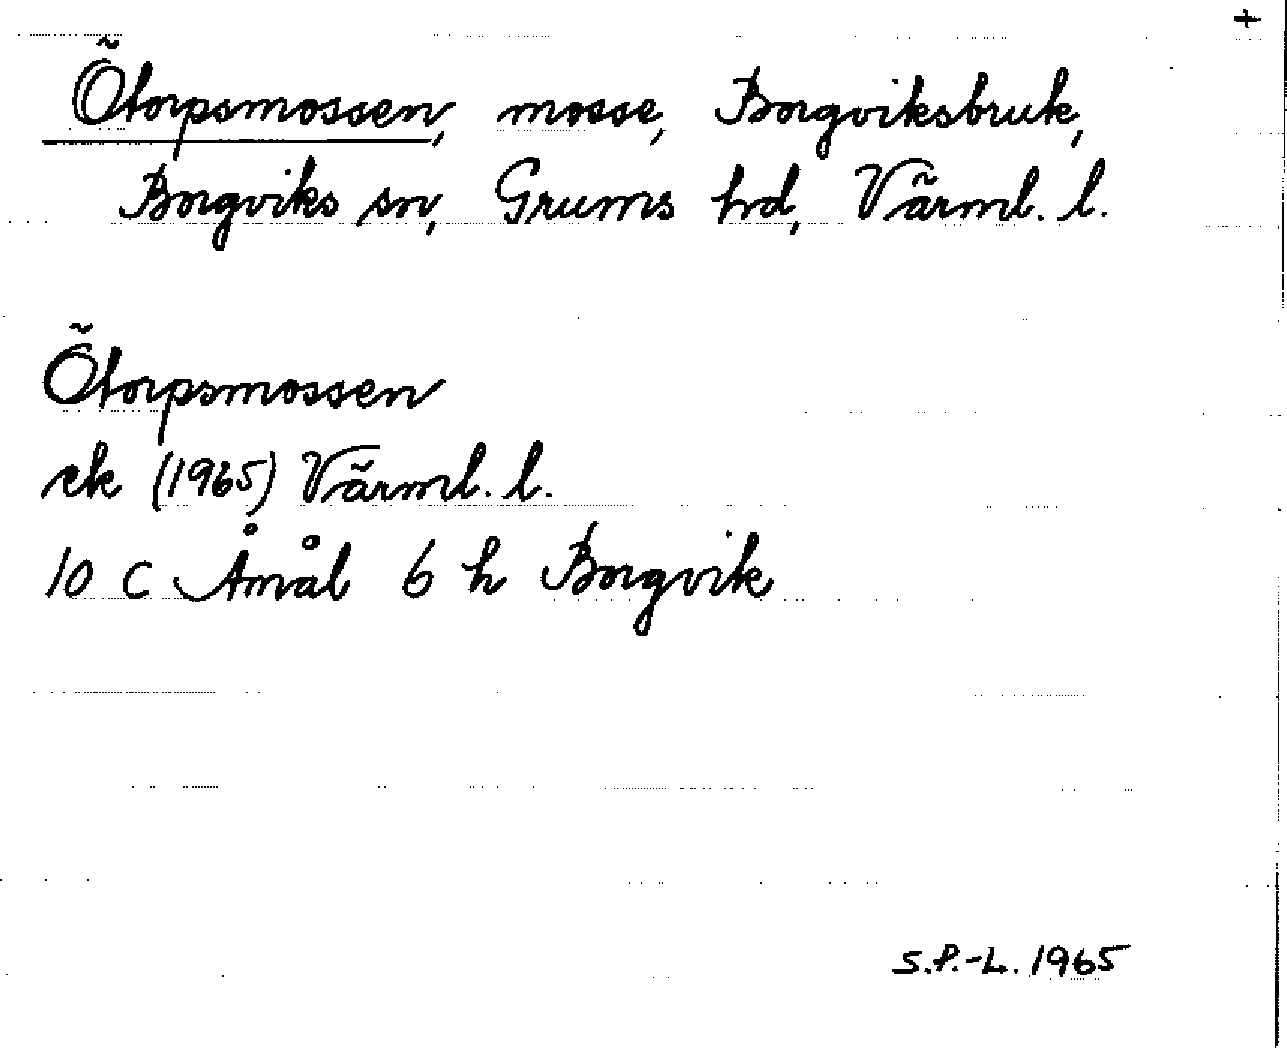 +
Ötorpsmossen, mosse, Borgviksbruk,
Borgviks sn, Grums hd, Värml. l.
Ötorpsmossen
ek (1965) Värml. l.
10 C Åmål 6 h Borgvik
S.P.-L. 1965